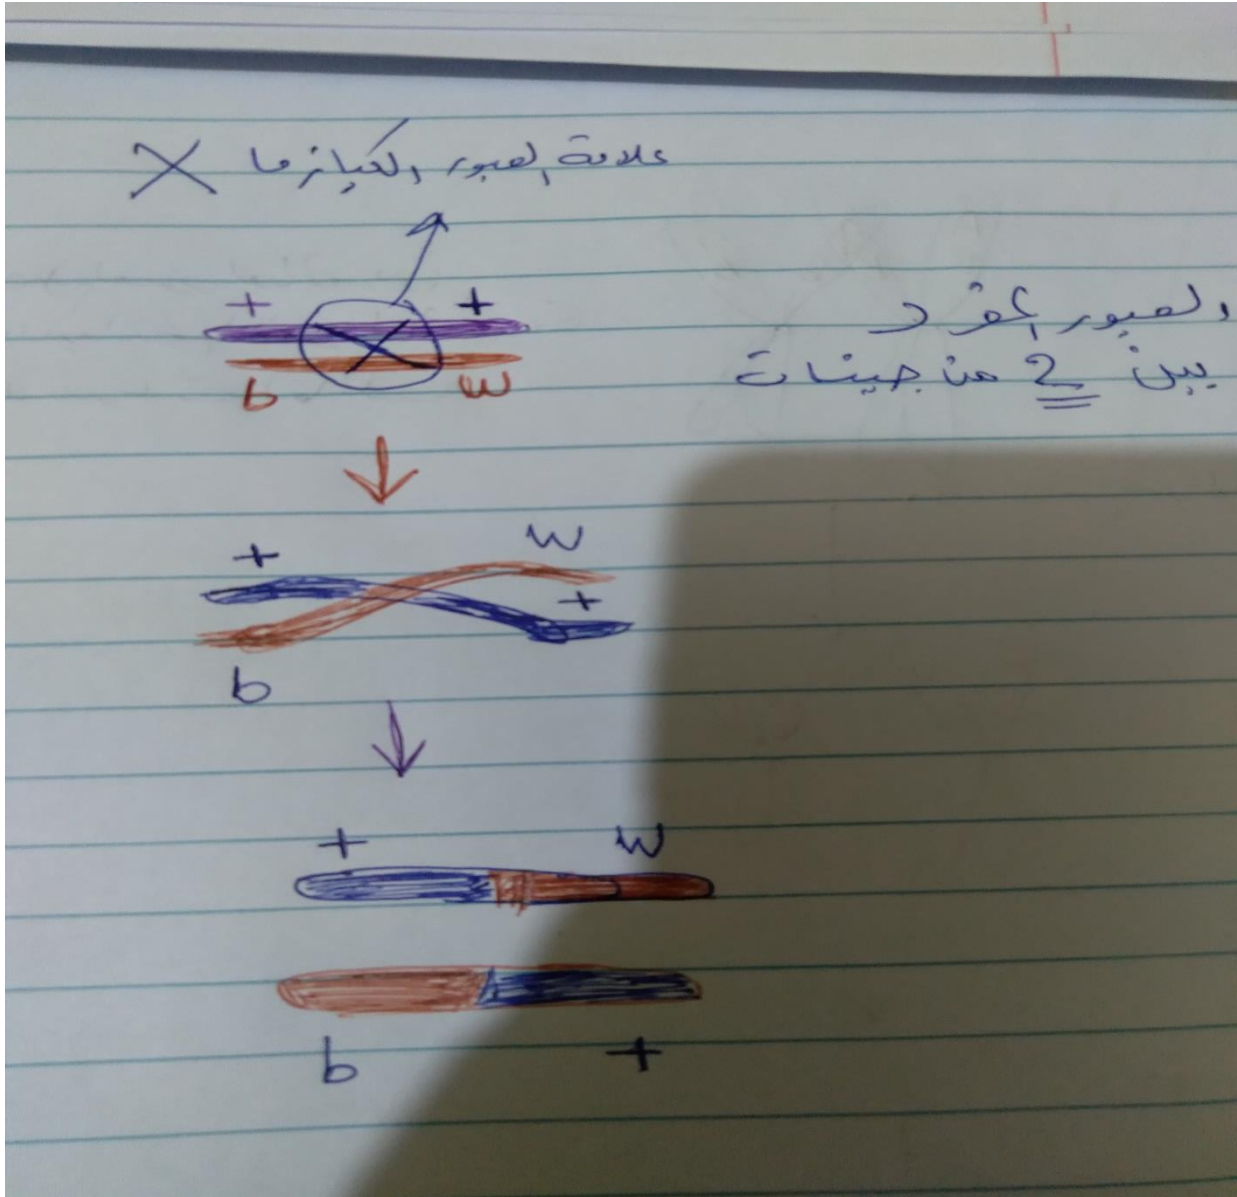 علامة العبور الكيازما X
+ +
العبور المفرد
بين 2 من جينات
b w
+ w
+
b
+ w
b +